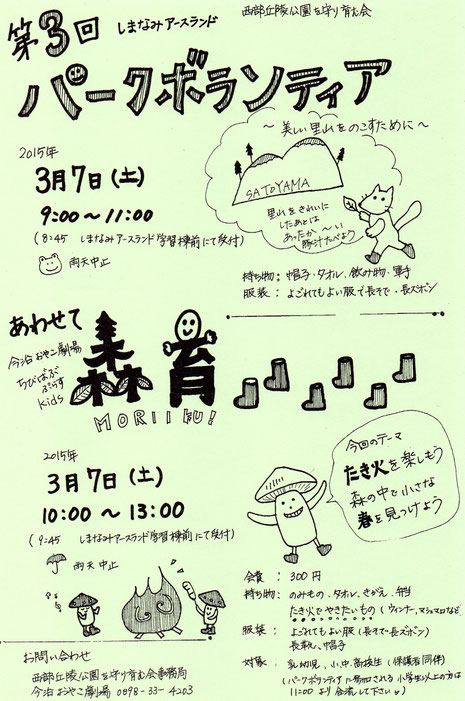 西部丘陵公園を守り育む会
第3回 しまなみアースランド
パークボランティア
2015年
3月7日(土)
9:00〜11:00
(8:45 しまなみアースランド学習棟前にて受付)
雨天中止
〜美しい里山をのこすために〜
SATOYAMA
里山をきれいに
したあとは
あったか〜い
豚汁たべよう
持ち物:帽子・タオル、飲み物・軍手
服装:よごれてもよい服で長そで・長ズボン
あわせて
今治おやこ劇場
ちびぱぷ
ぷらす
kids
森育
MORIIKU!
2015年
3月7日(土)
10:00〜13:00
(9:45 しまなみアースランド学習棟前にて受付)
雨天中止
今回のテーマ
たき火を楽しもう
森の中で小さな
春を見つけよう
会費:300円
持ち物:のみもの、タオル、きがえ、弁当
たき火でやきたいもの(ウィンナー、マシュマロなど)
服装:よごれてもよい服(長そで・長ズボン)
長靴、帽子
対象:乳幼児、小、中、高校生(保護者同伴)
(パークボランティアに参加される小学生以上の方は
11:00より合流して下さい)
お問い合わせ
西部丘陵公園を守り育む会事務局
今治おやこ劇場 0898-33-4203